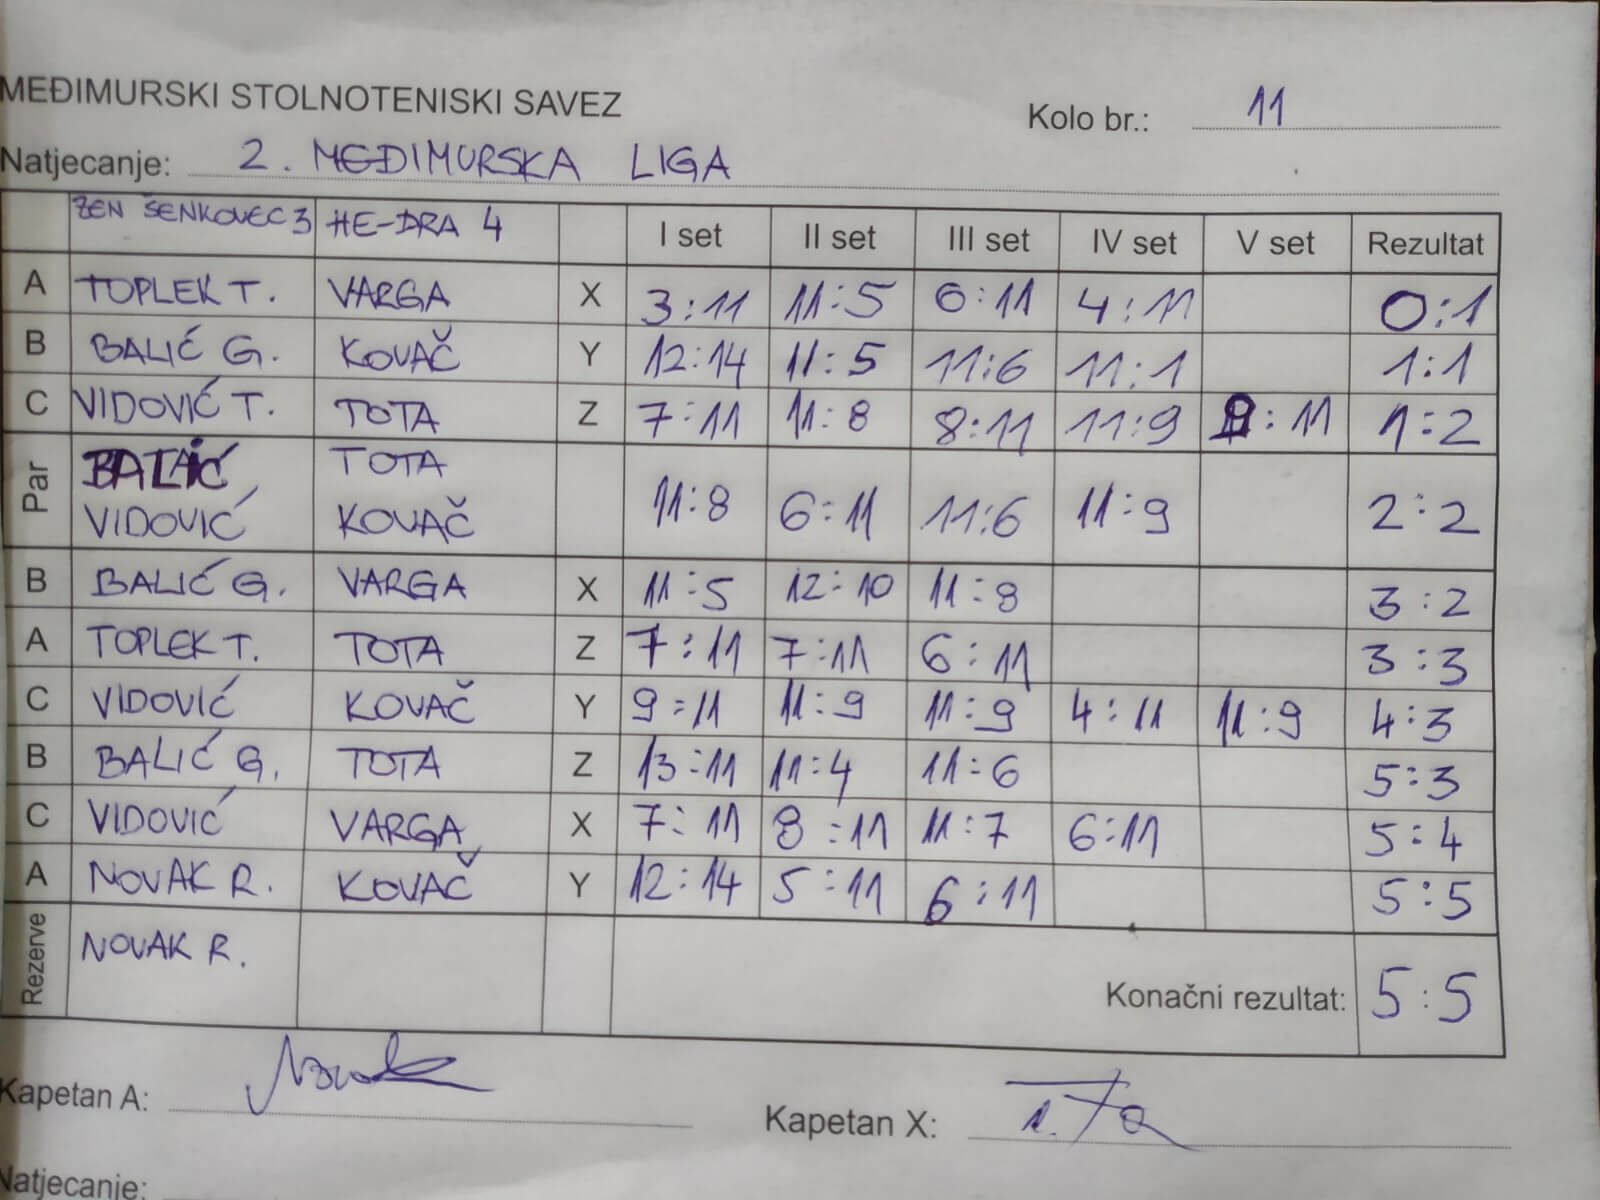 MEĐIMURSKI STOLNOTENISKI SAVEZ
Kolo br.: 11
Natjecanje: 2. MEĐIMURSKA LIGA
ŽEN ŠENKOVEC 3 HE-DRA 4 I set II set III set IV set V set Rezultat
A TOPLEK T. VARGA X 3:11 11:5 6:11 4:11 0:1
B BALIĆ G. KOVAČ Y 12:14 11:5 11:6 11:1 1:1
C VIDOVIĆ T. TOTA Z 7:11 11:8 8:11 11:9 :11 1:2
Par BALIĆ TOTA
VIDOVIĆ KOVAČ 11:8 6:11 11:6 11:9 2:2
B BALIĆ G. VARGA X 11:5 12:10 11:8 3:2
A TOPLEK T. TOTA Z 7:11 7:11 6:11 3:3
C VIDOVIĆ KOVAČ Y 9:11 11:9 11:9 4:11 11:9 4:3
B BALIĆ G. TOTA Z 13:11 11:4 11:6 5:3
C VIDOVIĆ VARGA X 7:11 8:11 11:7 6:11 5:4
A NOVAK R. KOVAČ Y 12:14 5:11 6:11 5:5
Rezerve NOVAK R.
Konačni rezultat: 5:5
Kapetan A: Novak
Kapetan X:
Natjecanje: